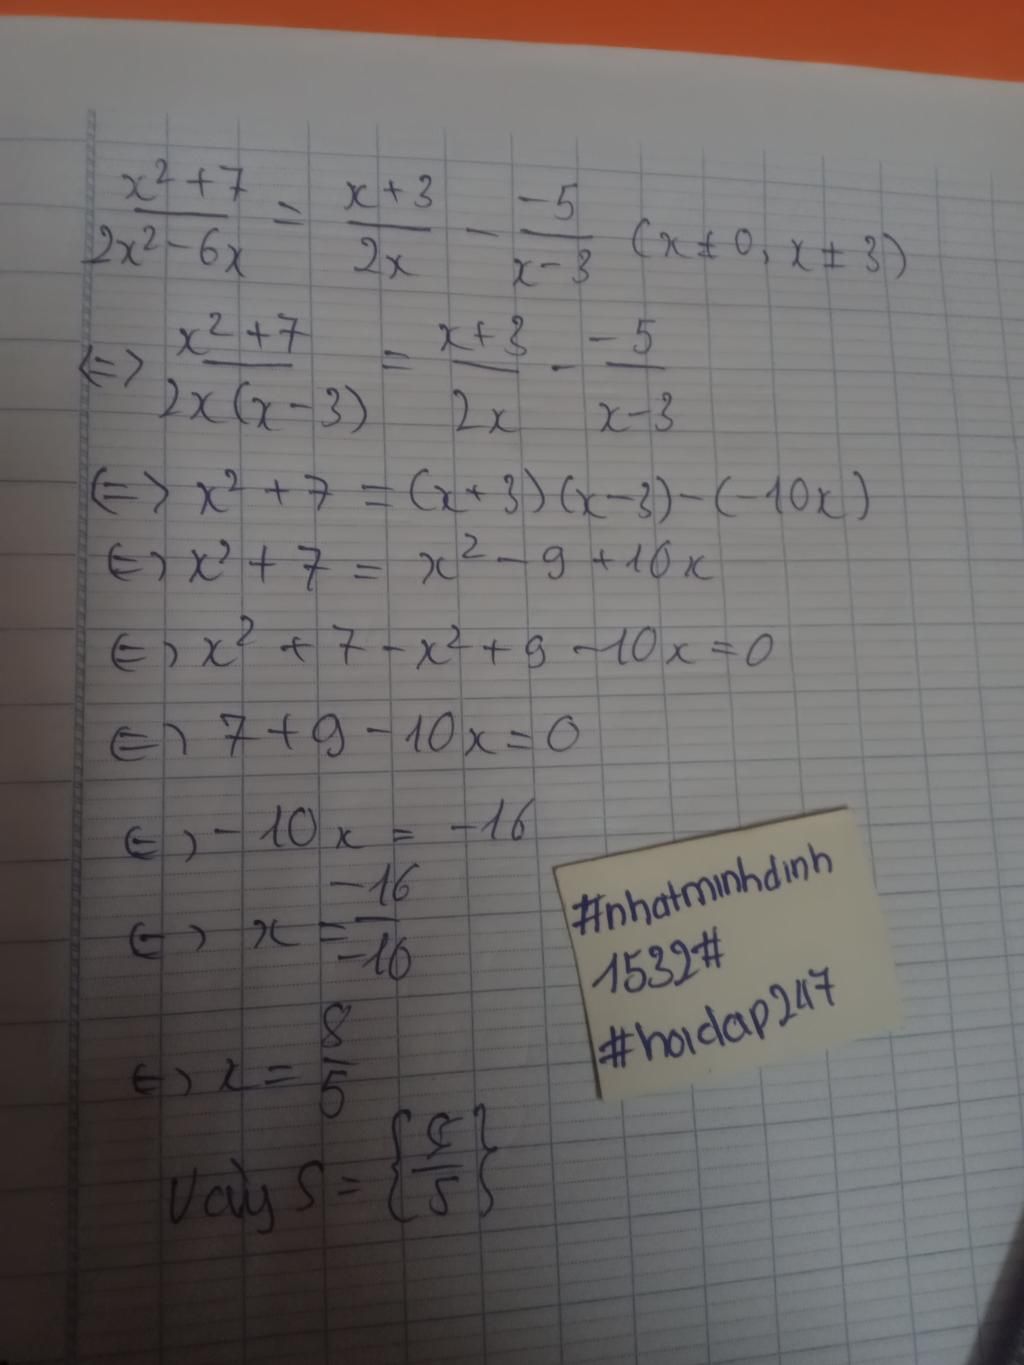 x²+7/2x²-6x = x+3/2x - -5/x-3 (x≠0, x≠3)
⇔ x²+7/2x(x-3) = x+3/2x - -5/x-3
⇔ x²+7 = (x+3)(x-3)-(-10x)
⇔ x²+7 = x²-9+10x
⇔ x²+7-x²+9-10x=0
⇔ 7+9-10x=0
⇔ -10x = -16
⇔ x = -16/-10
⇔ x = 8/5
Vậy S = {8/5}
#nhatminhdinh
1532#
#hoidap247